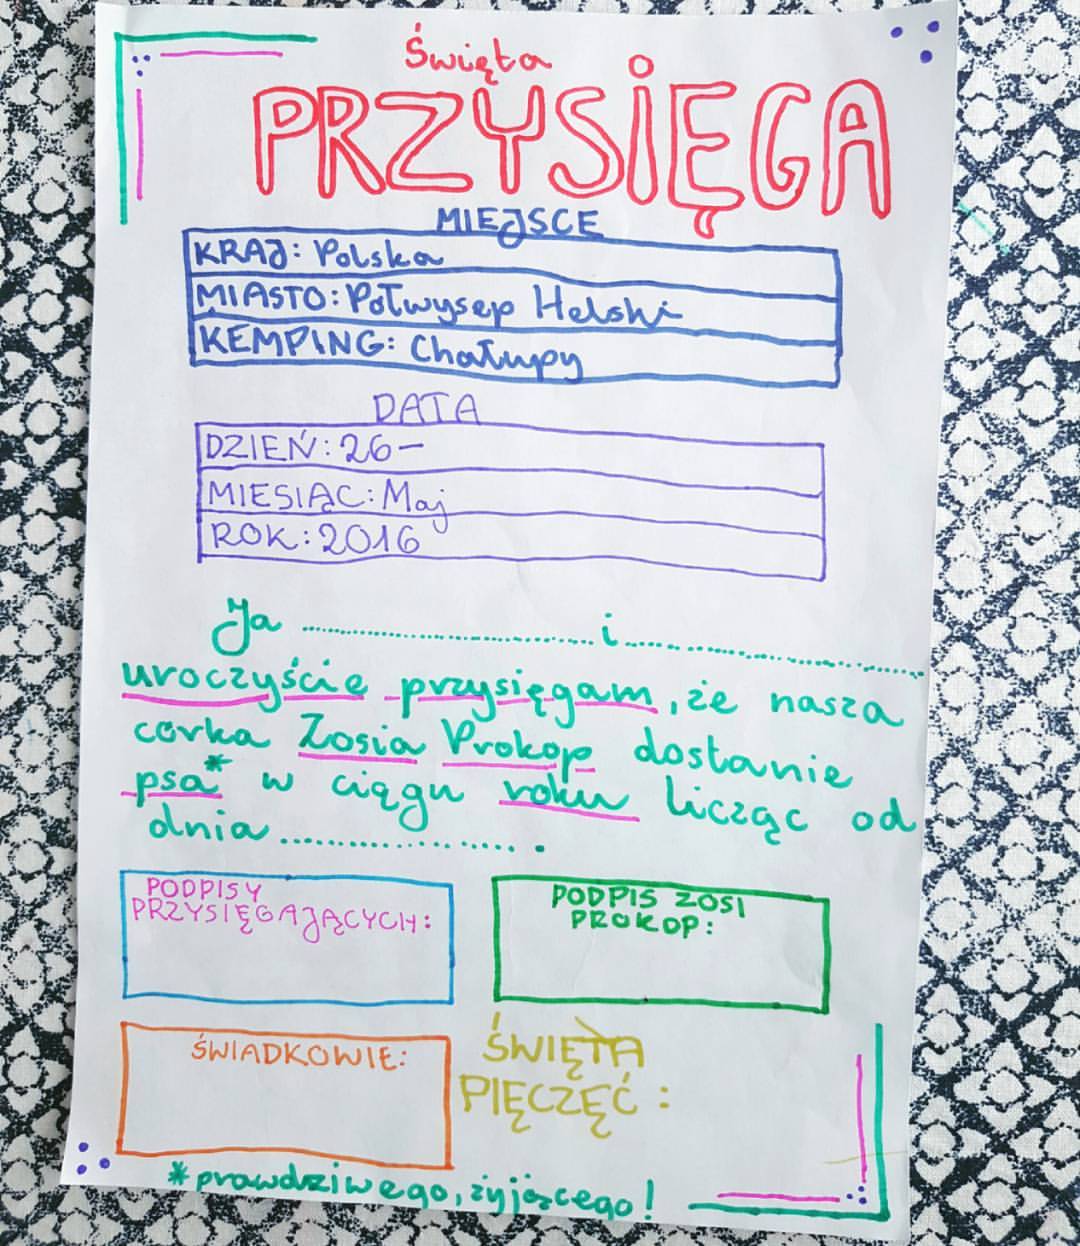 Święta
PRZYSIĘGA
MIEJSCE
KRAJ: Polska
MIASTO: Półwysep Helski
KEMPING: Chałupy
DATA
DZIEŃ: 26-
MIESIĄC: Maj
ROK: 2016
Ja .............................. i ..............................
uroczyście przysięgam, że nasza
córka Zosia Prokop dostanie
psa* w ciągu roku licząc od
dnia ................ .
PODPISY
PRZYSIĘGAJĄCYCH:
PODPIS ZOSI
PROKOP:
ŚWIADKOWIE:
ŚWIĘTA
PIĘCZĘĆ:
*prawdziwego, żyjącego!